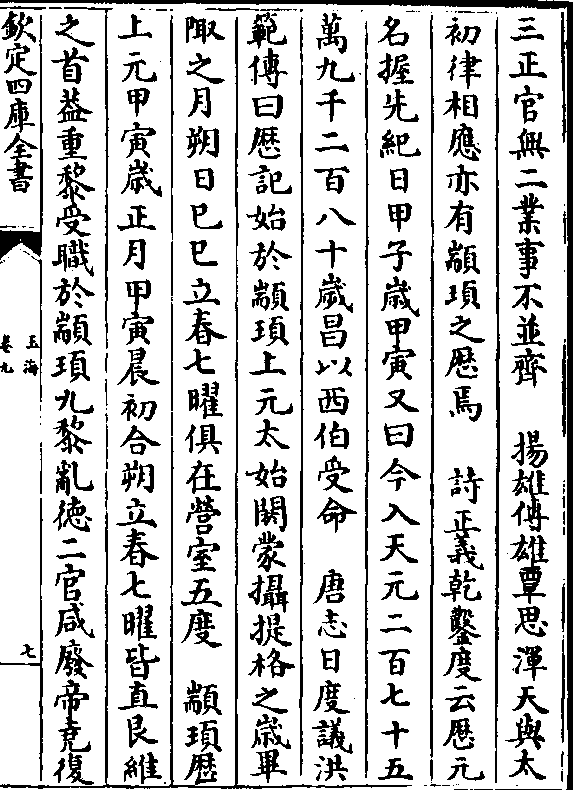 三正官無二業事不並齊　揚雄傳雄覃思渾天與太
初律相應亦有顓頊之厯焉　詩正義乾鑿度云厯元
名握先紀日甲子歲甲寅又曰今入天元二百七十五
萬九千二百八十歲昌以西伯受命　唐志日度議洪
範傳曰厯記始於顓頊上元太始閼蒙攝提格之歲畢
陬之月朔日巳巳立春七曜俱在營室五度　顓頊厯
上元甲寅歲正月甲寅晨初合朔立春七曜皆直艮維
之首葢重黎受職於顓頊九黎亂徳二官咸廢帝堯復
欽定四庫全書
玉海
卷九
七